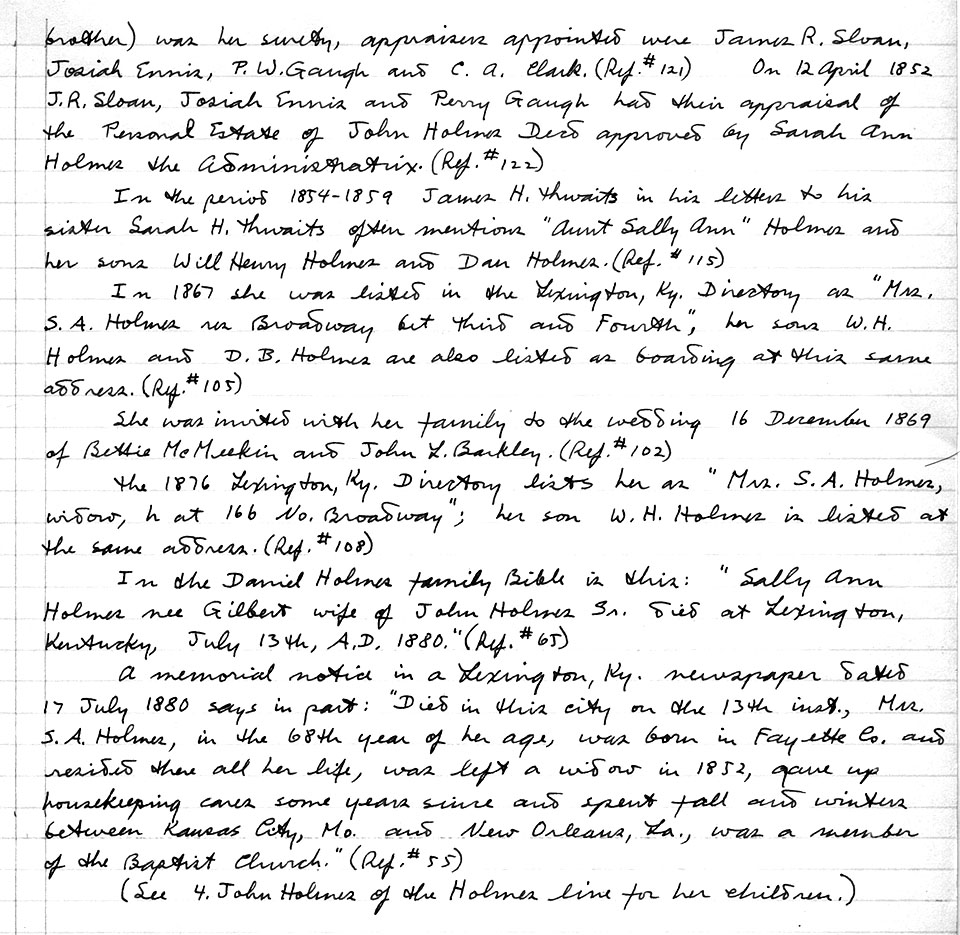 brother) was her surety, appraisers appointed were James R. Sloan,
Josiah Ennis, P.W. Gaugh and C. A. Clark. (Ref. #121) On 12 April 1852
J.R. Sloan, Josiah Ennis and Perry Gaugh had their appraisal of
the Personal Estate of John Holmes Decd approved by Sarah Ann
Holmes the Administratrix. (Ref. #122)
In the period 1854-1859 James H. Thwaits in his letters to his
sister Sarah H. Thwaits often mentions "Aunt Sally Ann" Holmes and
her sons Will Henry Holmes and Dan Holmes. (Ref. #115)
In 1867 she was listed in the Lexington, Ky. Directory as "Mrs.
S. A. Holmes res Broadway bet Third and Fourth"; her sons W.H.
Holmes and D. B. Holmes are also listed as boarding at this same
address. (Ref. #105)
She was invited with her family to the wedding 16 December 1869
of Bettie McMeekin and John L. Barkley. (Ref. #102)
The 1876 Lexington, Ky. Directory lists her as "Mrs. S. A. Holmes,
widow, h at 166 No. Broadway"; her son W. H. Holmes is listed at
the same address. (Ref. #108)
In the Daniel Holmes family Bible is this: "Sally Ann
Holmes nee Gilbert wife of John Holmes Sr. died at Lexington,
Kentucky, July 13th, A.D. 1880." (Ref. #65)
A memorial notice in a Lexington, Ky. newspaper dated
17 July 1880 says in part: "Died in this city on the 13th inst., Mrs.
S. A. Holmes, in the 68th year of her age, was born in Fayette Co. and
resided there all her life, was left a widow in 1852, gave up
housekeeping cares some years since and spent fall and winters
between Kansas City, Mo. and New Orleans, La., was a member
of the Baptist Church." (Ref. #55)
(See 4. John Holmes of the Holmes line for her children.)